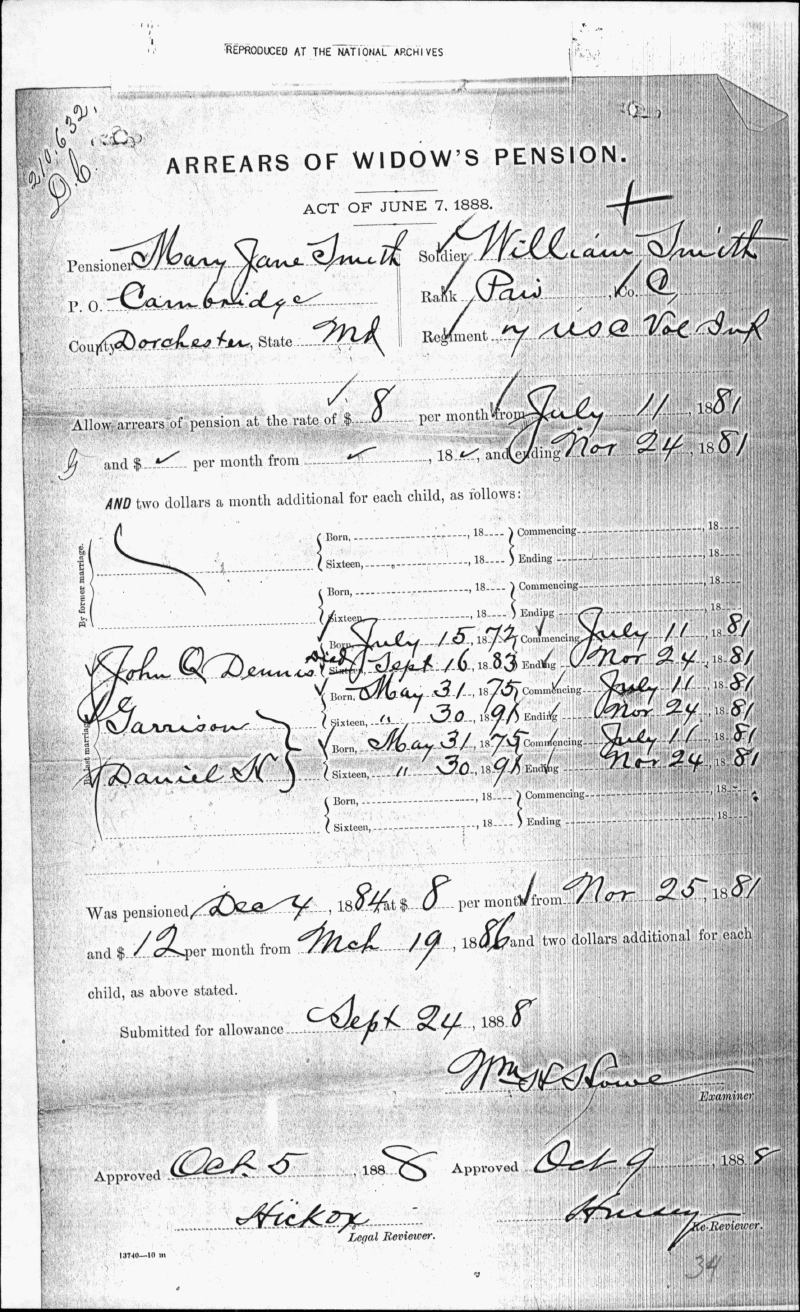 REPRODUCED AT THE NATIONAL ARCHIVES
210,632.
ARREARS OF WIDOW'S PENSION.
ACT OF JUNE 7, 1888.
Pensioner Mary Jane Smith Soldier William Smith
P. O. Cambridge Rank Pri , Co. C,
County Dorchester, State Md Regiment 7 USC Vol Inf
Allow arrears of pension at the rate of $ 8 per month from July 11, 1881
and $ per month from , 18 , and ending Nov 24, 1881
AND two dollars a month additional for each child, as follows:
By former marriage.
Born, , 18 Commencing , 18
Sixteen, , 18 Ending , 18
Born, , 18 Commencing , 18
Sixteen, , 18 Ending , 18
By last marriage.
Born, July 15, 1872 Commencing July 11 1881
John Q Dennis Died Sixteen, Sept 16, 1883 Ending Nov 24, 1881
Born, May 31, 1875, Commencing July 11 1881
Garrison Sixteen, " 30, 1891 Ending Nov 24, 1881
Born, May 31, 1875 Commencing July 11 1881
Daniel H Sixteen, " 30, 1891 Ending Nov 24, 1881
Born, , 18 Commencing , 18
Sixteen, , 18 Ending , 18
Was pensioned Dec 4, 1884 at $ 8 per month from Nov 25, 1881
and $ 12 per month from Mch 19, 1886 and two dollars additional for each
child, as above stated.
Submitted for allowance Sept 24, 1888
Wm H Howe
Examiner
Approved Oct. 5, 1888 Approved Oct 9, 1888
Hickox
Legal Reviewer. Re-Reviewer.
13740—10 m
34